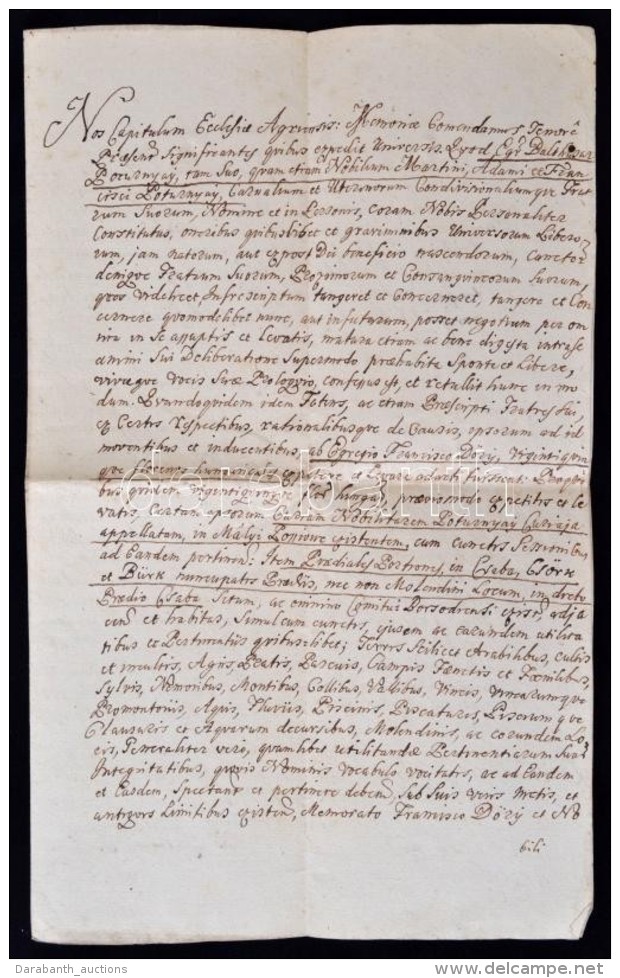 Nos Capitulum Ecclesiæ Agriensis: Memoriæ Comendamus Tenorē
Præsent Significantes quibus expedit Universis. Quod, Egr Balthasar
Poturnyay, tam Suo, quam etiam Nobilium Martini, Adami et Fran
cisci Poturnyay, Carnalium et Uterinorum Condivisionaliumque Frat
rum Suorum, Nomine et in Personis, Coram Nobis Personaliter
Constitutus, oneribus quibuslibet et gravaminibus Universorum Libero-
rum, jam natorum, aut expost Dei beneficio nascendorum, Cunctor
denique Fratrum Suorum, Proximorum et Consanguineorum Suorum,
quos videlicet Infrascriptum tangeret et Concerneret, tangere et Con
cernere quomodolibet nunc, aut in futurum, posset negotium per om
nia in se assuptis et levatis, matura etiam ac bene digesta intra se
animi Sui Deliberatione Supermode præhabita Sponte et Libere,
vivaque vocis Suæ Proloquio, confessus est, et retullit hunc in mo
dum. Quandoquidem idem Fatens, ac etiam Præscripti Fratres Sui,
ex Certis respectibus, rationabilibusque de Causis, ipsorum ad id
moventibus et inducentibus, ab Egregio Francisco Dőry, Viginti
que florenos hungaricales
bus quidem præviomodo expetitis et le
vatis, Curiam Nobilitarem Poturnyay Curiaja
appellatam, in Mályi Possione existentem, cum cunctis Sessionibus
ad Eandem pertinen: Item Prædiales Portiones, in Csaba, Csörk
et Bürk nuncupatis Prædiis, nec non Molendini Locum, in dicto
Prædio Csaba Situm, ac omnino Comitui Borsodiensi: existen, adja
cen et habitas, Simulcum cunctis, ejusdem ac earundem utilita
tibus et Pertinentiis quibuslibet; Terris Scilicet Arabilibus, Cultis
et incultis, Agris, Pratis, Pascuis, Campis Fænetis et Fœnilibus,
Sylvis, Nemoribus, Montibus, Collibus, Vallibus, Vineis, Vinearumque
Promontoriis, Aquis, Fluviis, Piscinis, Piscaturis, Piscium que
Clausuris et Aquarum decursibus, Molendinis, ac eorundem Lo
cis, Generaliter vero, quarumlibet utilitandæ Pertinentiarum Suar
Integritatibus, quovis Nominis vocabulo vocitatis, ac ad Eandem
et Easdem, Spectant et pertinere deben, Sub Suis veris Metis, et
antiquis Limitibus existen, Memorato Francisco Dőry et No
bili
darabanth
Darabanth_auctions
www.delcampe.net